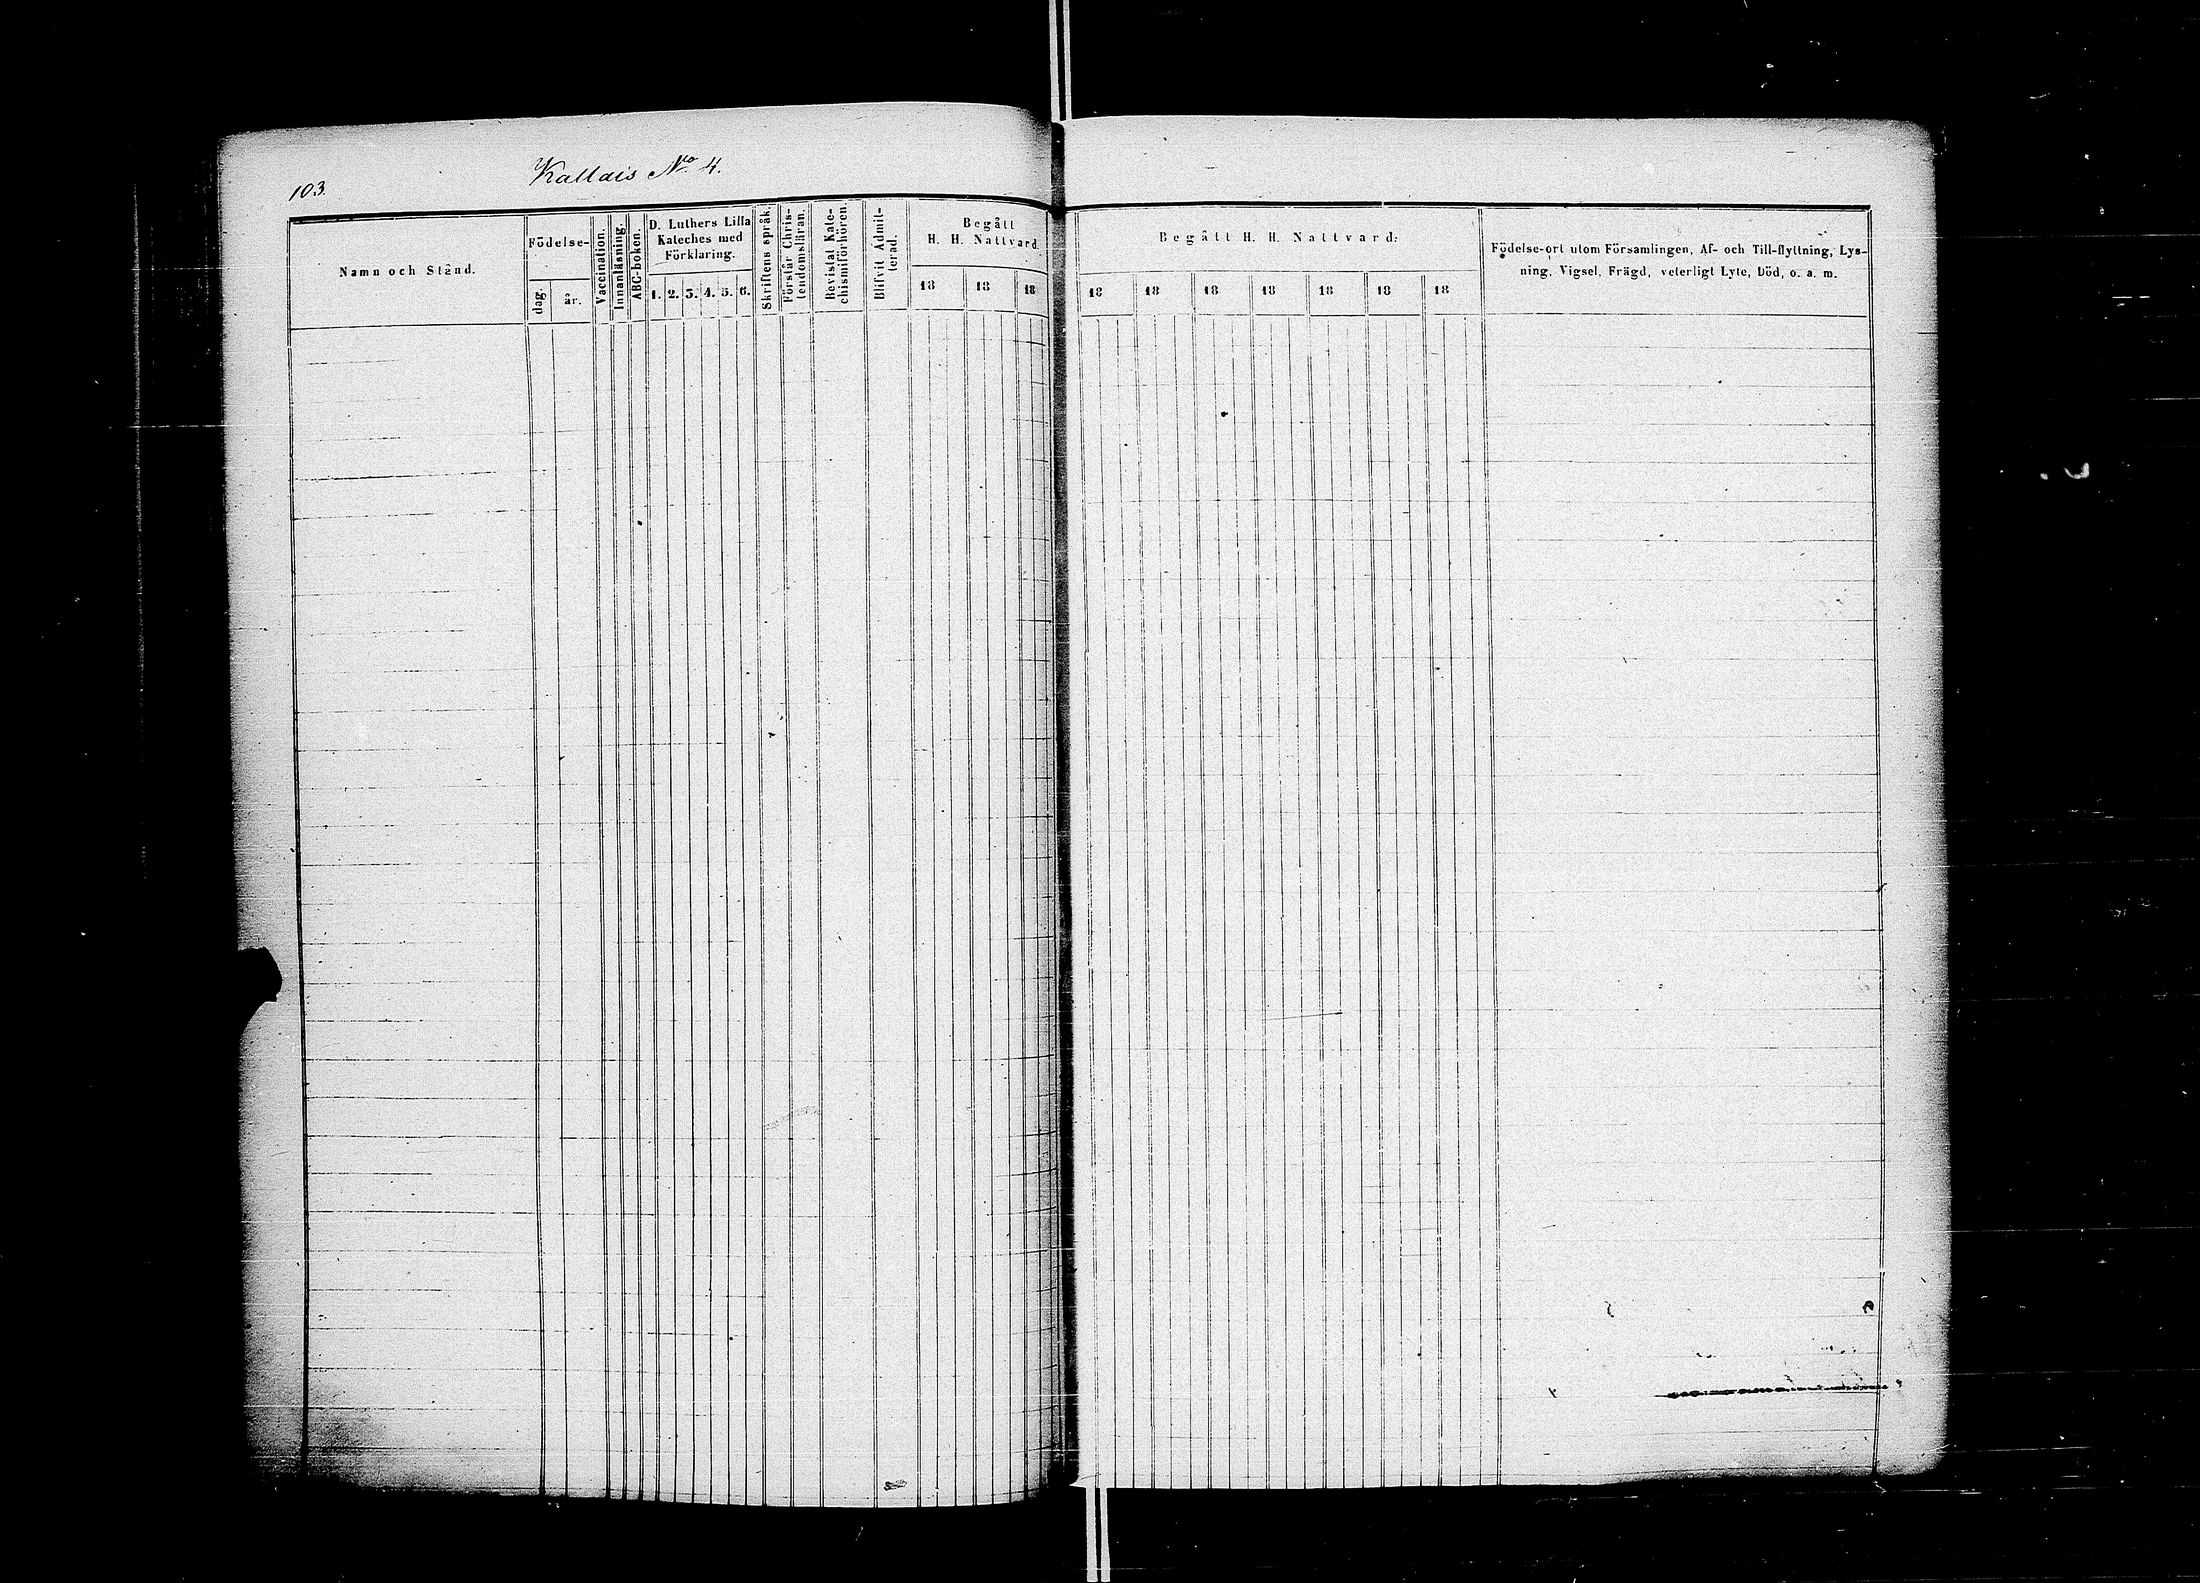 103.
Kallais No 4.
Namn och Stånd.
Födelse-
dag.
år.
Vaccination.
Innanläsning.
ABC-boken.
D. Luthers Lilla
Kateches med
Förklaring.
1. 2. 3. 4. 5. 6.
Skriftens språk.
Förstår Chris-
tendomsläran.
Bevistat Kate-
chismiförhören.
Blifvit Admit-
terad.
Begått
H. H. Nattvard.
18 18 18
Begått H. H. Nattvard:
18 18 18 18 18 18 18
Födelse-ort utom Församlingen, Af- och Till-flyttning, Lys-
ning, Vigsel, Frägd, veterligt Lyte, Död, o. a. m.